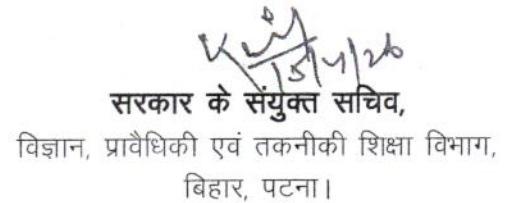 15/4/26
सरकार के संयुक्त सचिव,
विज्ञान, प्रावैधिकी एवं तकनीकी शिक्षा विभाग,
बिहार, पटना।